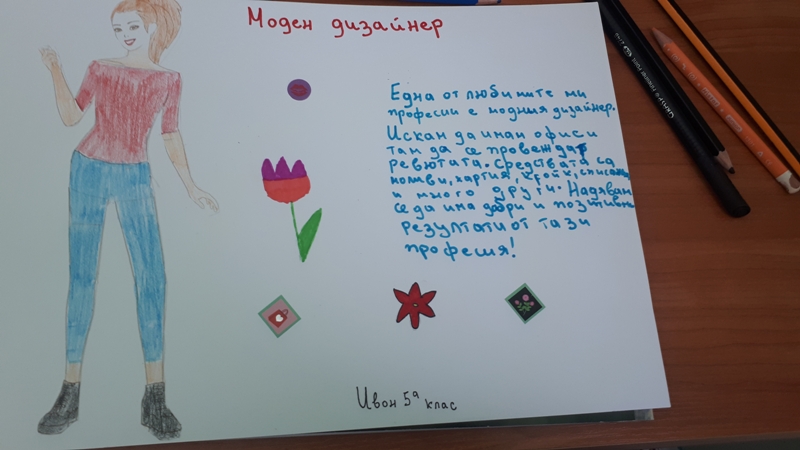 Моден дизайнер
Една от любимите ми
професии е модния дизайнер.
Искам да имам офис и
там да се провеждат
ревютата. Средствата са
моливи, хартия, кройк, списания
и много други. Надявам
се да има добри и позитивни
резултати от тази
професия!
Ивон 5а клас